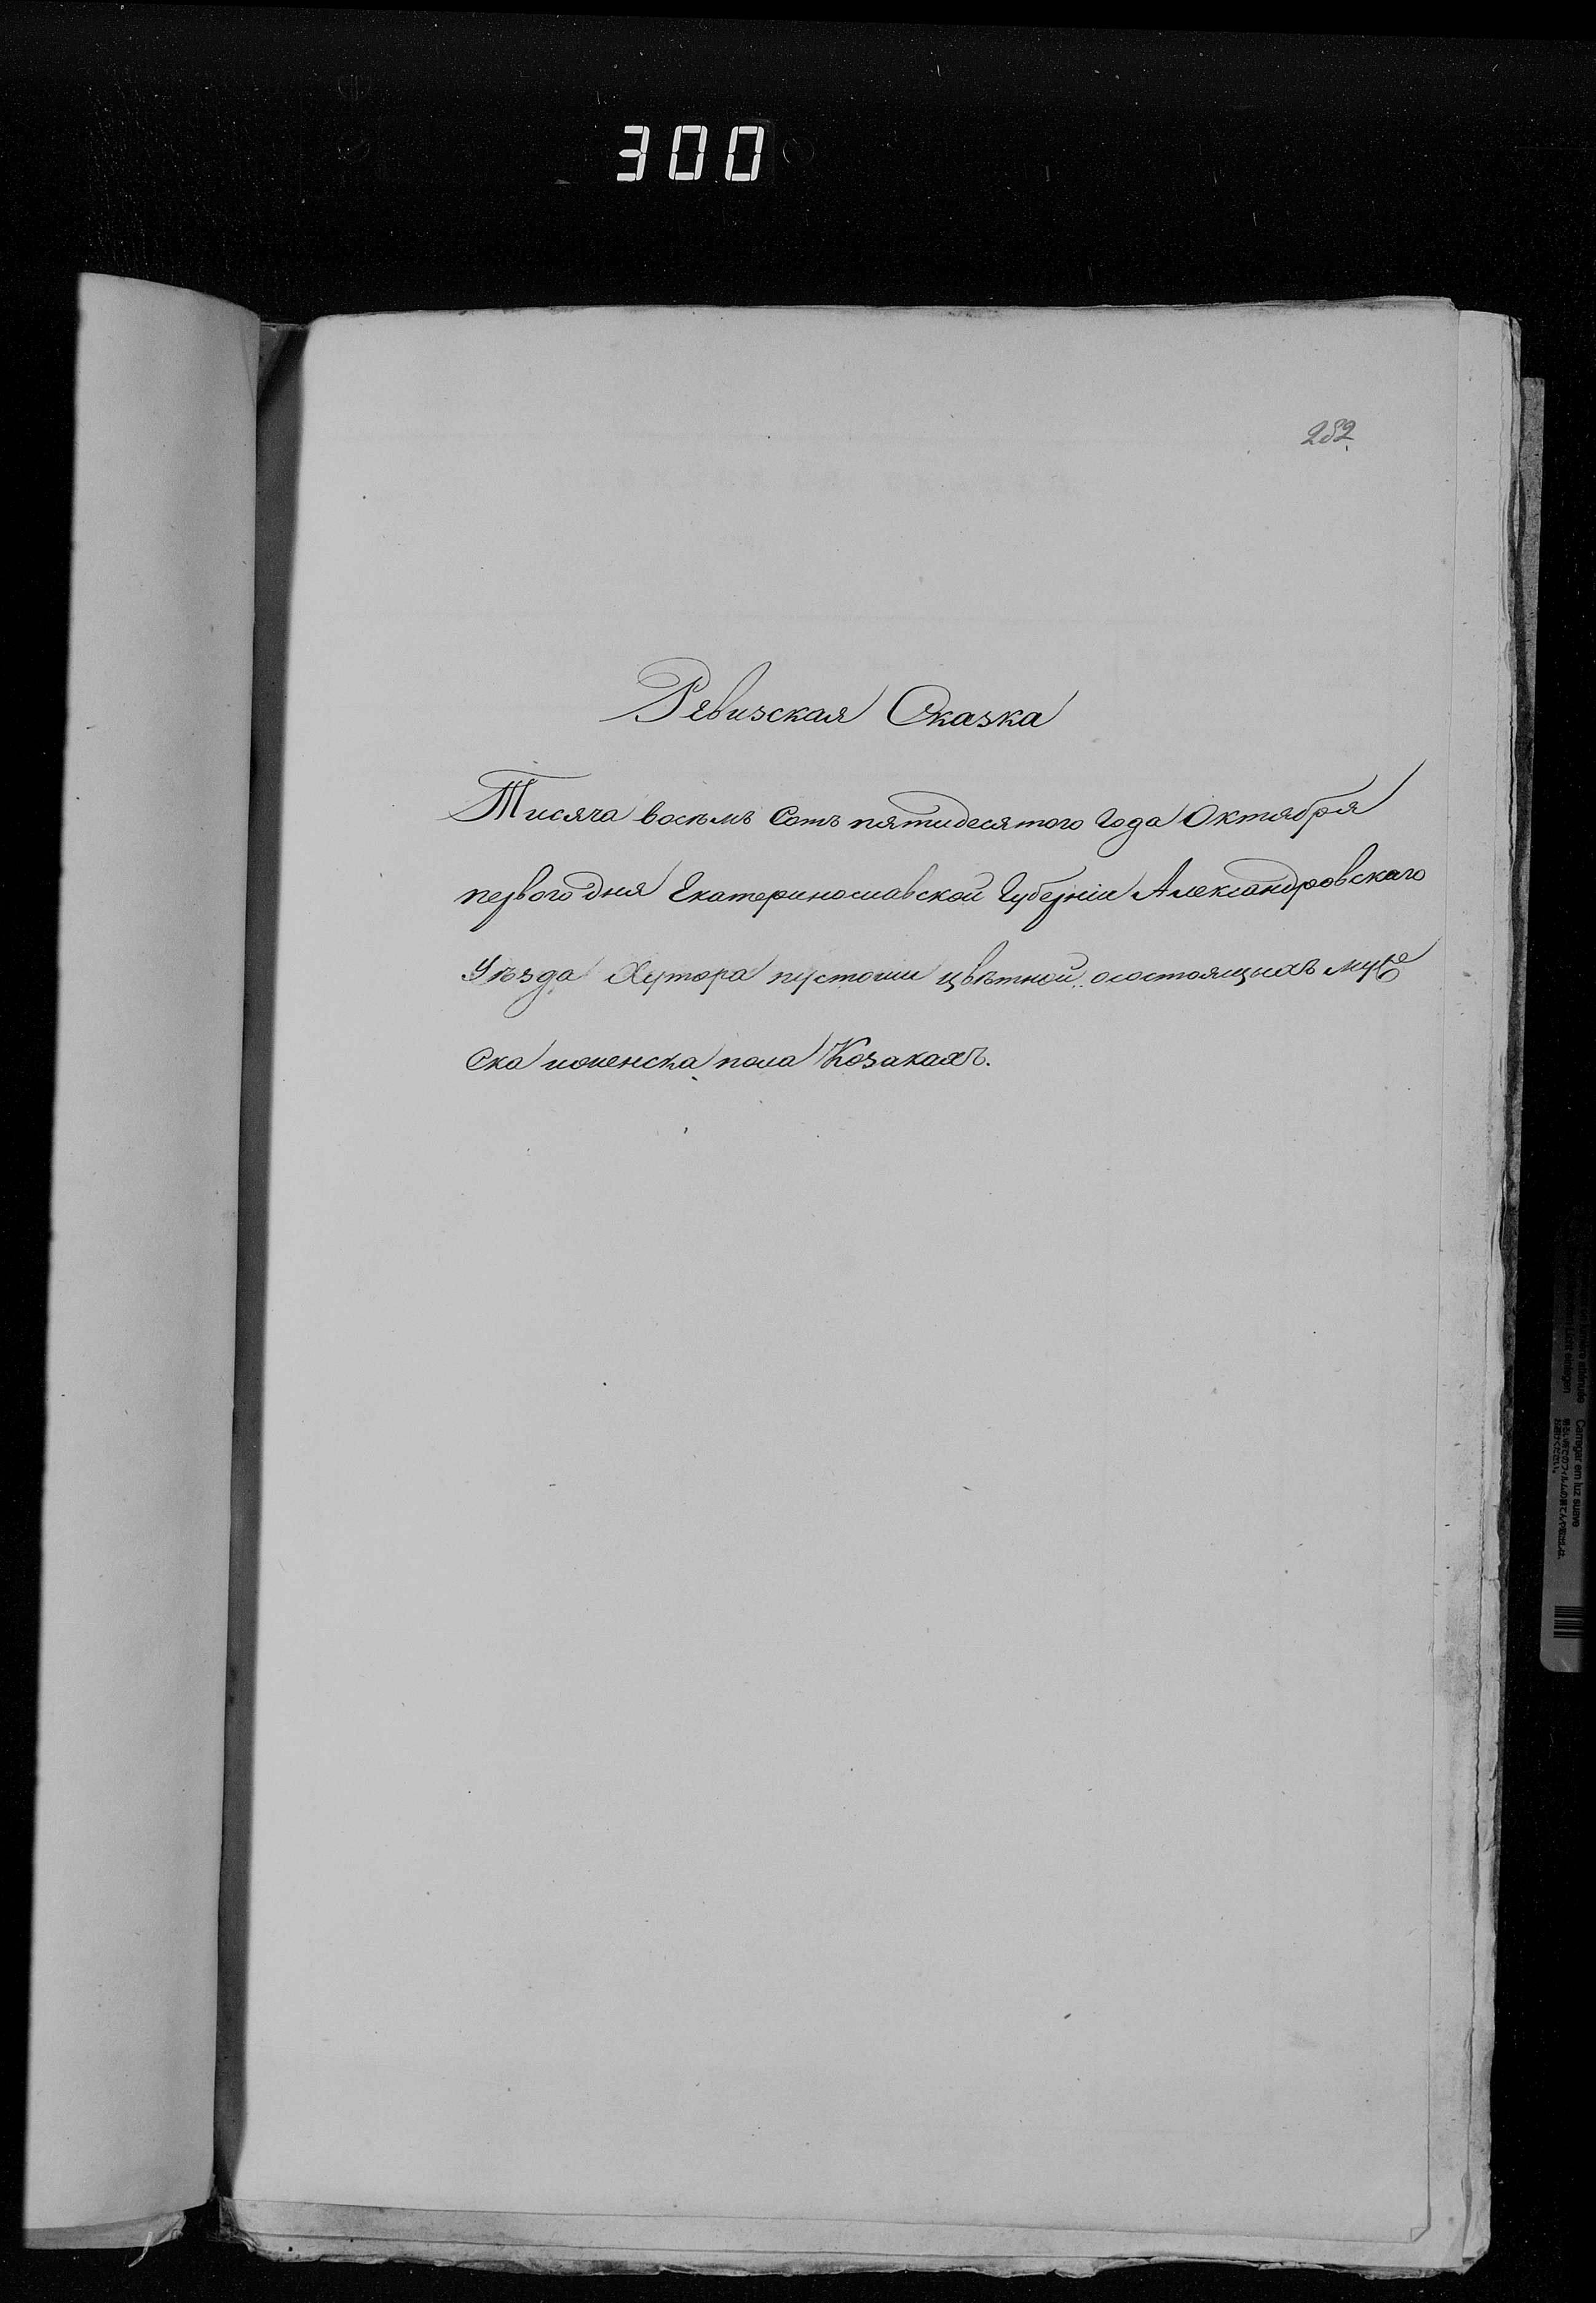 300
282
Ревизская Сказка
Тисяча восемь Сотъ пятидесятого Года Октября
первого дня Екатеринославской Губерніи Александровскаго
Уѣзда Хутора пустоши цвѣтной осостоящыхъ муже
Ска иженска пола Козакахъ.
Carregar em luz suave